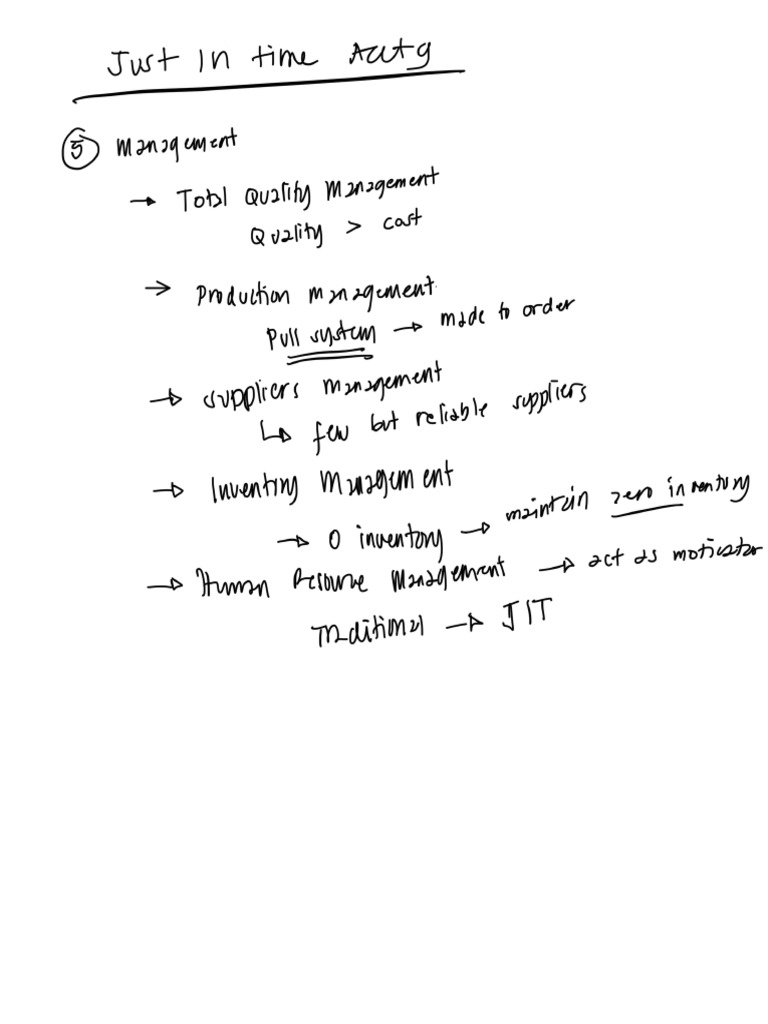 Just in time Acctg
⑤ Management
→ Total Quality Management
Quality > cost
→ Production management
Pull system → made to order
→ suppliers management
↳ few but reliable suppliers
→ Inventory Management
→ 0 inventory → maintain zero inventory
→ Human Resource Management → act as motivator
Traditional → JIT